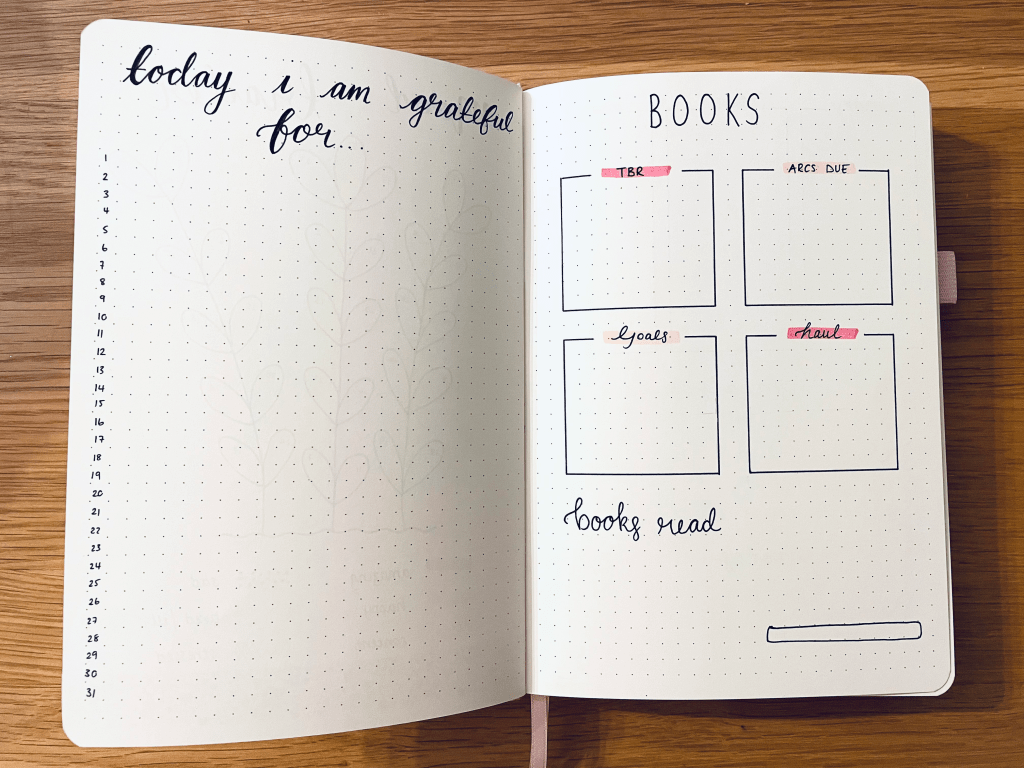 today i am grateful
for...
1
2
3
4
5
6
7
8
9
10
11
12
13
14
15
16
17
18
19
20
21
22
23
24
25
26
27
28
29
30
31
BOOKS
TBR
ARCS DUE
Goals
haul
books read